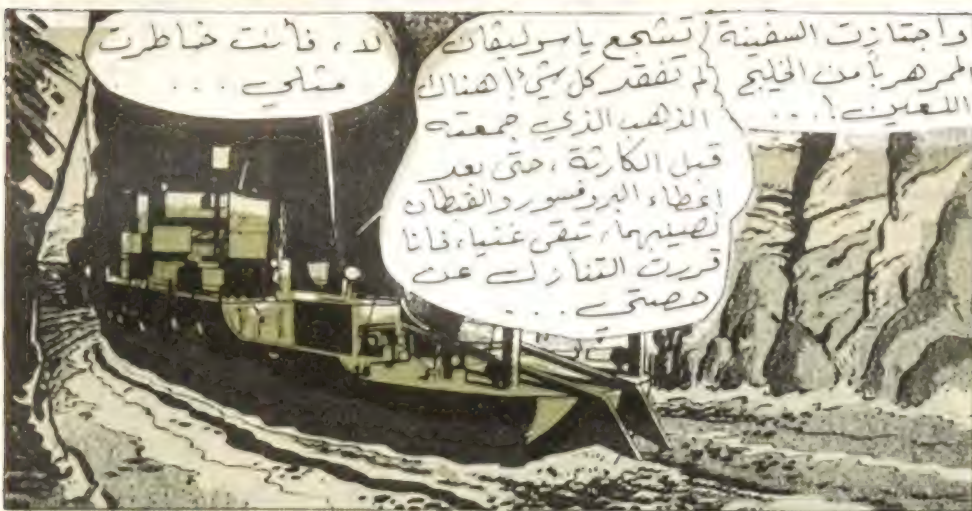 واجتازت السفينة
الممر هرباً من الخليج
اللعين !...
تشجع يا سوليفان
لم تفقد كل شيء! هناك
الذهب الذي جمعته
قبل الكارثة، حتى بعد
إعطاء البروفسور والقبطان
نصيبهما، تبقى غنيا، فانا
قررت التنازل عن
حصتي ...
لا، فأنت خاطرت
مثلي ...